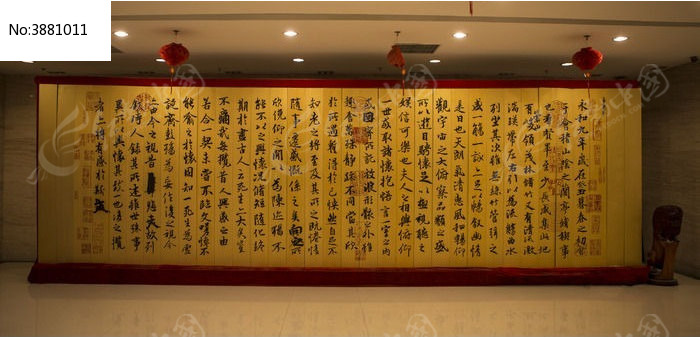 No:3881011
永和九年歲在癸丑暮春之初會
于會稽山陰之蘭亭脩稧事
也羣賢畢至少長咸集此地
有峻領茂林脩竹又有清流激
湍暎帶左右引以為流觴曲水
列坐其次雖無絲竹管弦之
盛一觴一詠亦足以暢叙幽情
是日也天朗氣清惠風和暢仰
觀宇宙之大俯察品類之盛
所以遊目騁懷足以極視聽之
娛信可樂也夫人之相與俯仰
一世或取諸懷抱悟言一室之內
或因寄所託放浪形骸之外雖
趣舍萬殊靜躁不同當其欣
於所遇蹔得於己怏然自足不
知老之將至及其所之既惓情
隨事遷感慨係之矣向之所
欣俛仰之閒以為陳迹猶不
能不以之興懷況脩短隨化終
期於盡古人云死生亦大矣豈
不痛哉每攬昔人興感之由
若合一契未嘗不臨文嗟悼不
能喻之於懷固知一死生為虛
誕齊彭殤為妄作後之視今
亦由今之視昔悲夫故列
叙時人錄其所述雖世殊事
異所以興懷其致一也後之攬
者亦將有感於斯文